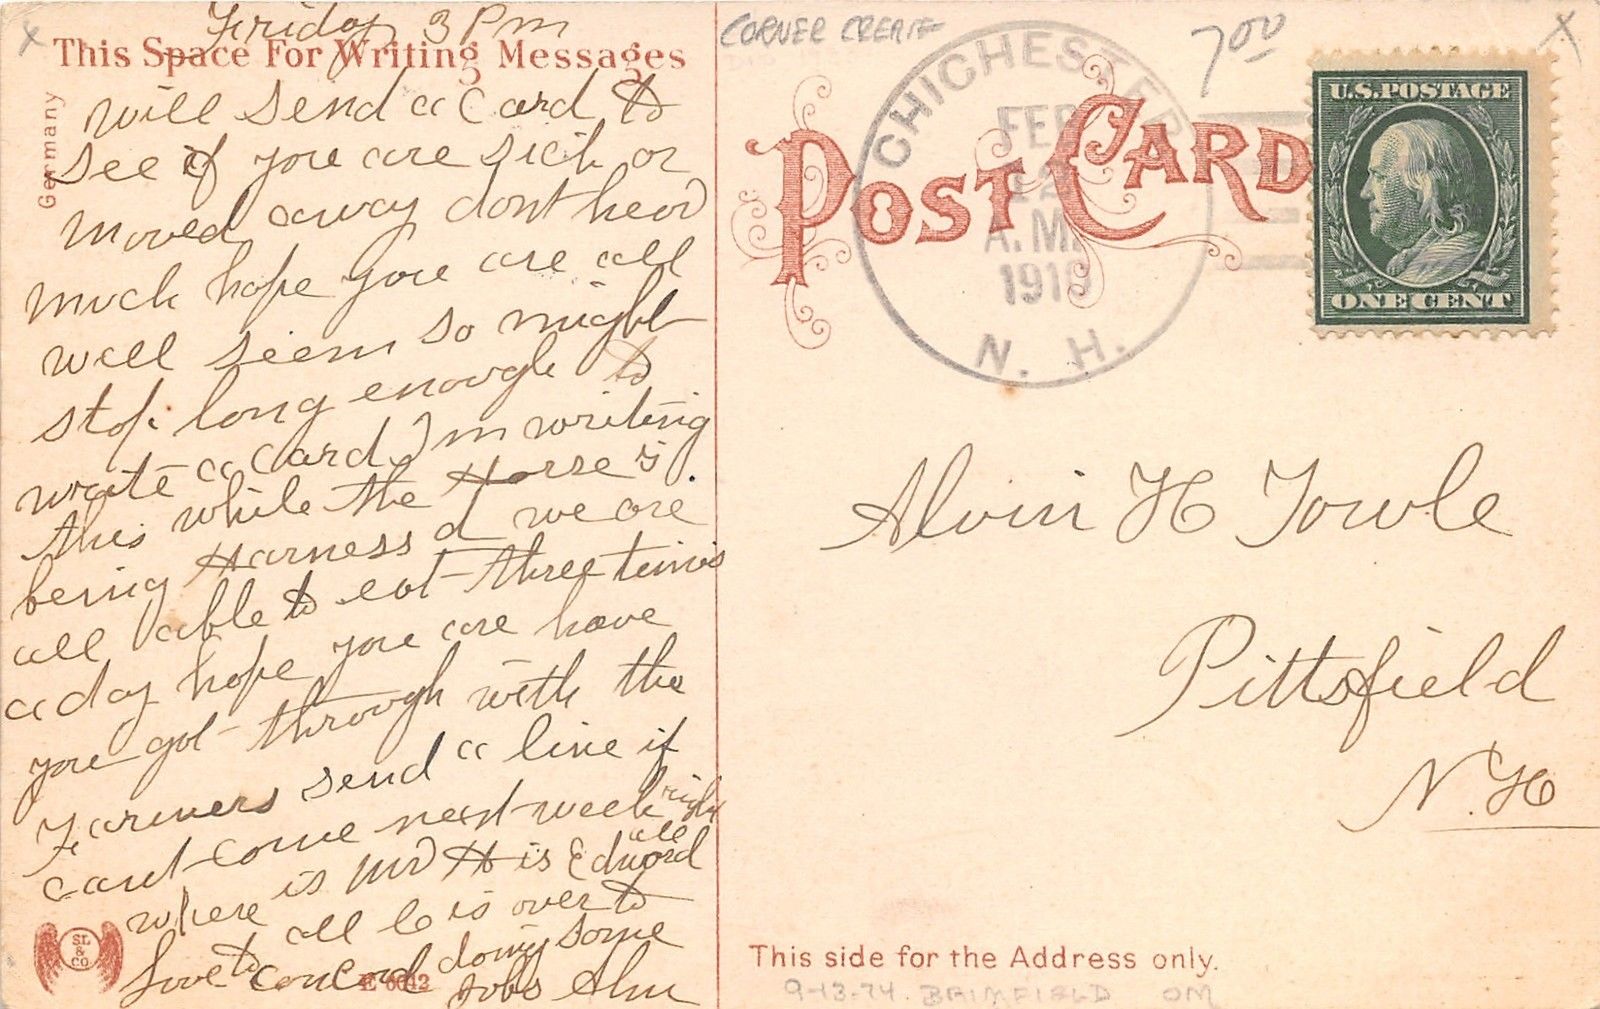 Friday 3 Pm
This Space For Writing Messages
Germany
will send a Card to
see if you are sick or
moved away dont hear
much hope you are all
well seem so might
stop long enough to
write a Card Im writing
this while the Horse is
being Harnessd we are
all able to eat three times
a day hope you are have
you got through with the
Farmers send a line if
cant come next week
where is Mr H is Edward all right
all C is over to
Love to Concord doing some
jobs
SL & CO.
E 6642
CORNER CREASE
7 00
X
X
POST CARD
CHICHESTER
FEB
12
A.M.
1910
N. H.
U.S. POSTAGE
ONE CENT
Alvin H Towle
Pittsfield
N. H
This side for the Address only.
9-13-74 BRIMFIELD OM